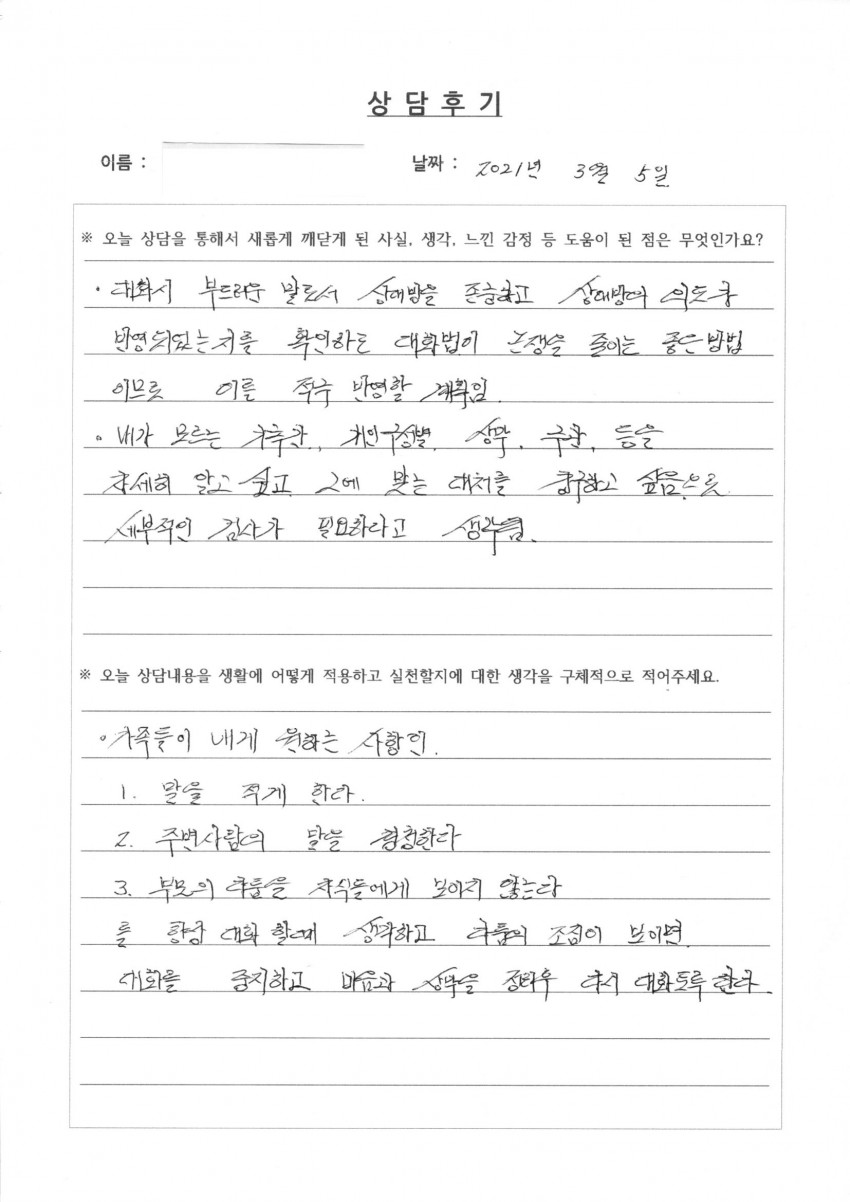 상 담 후 기
이름 : 날짜 : 2021년 3월 5일
※ 오늘 상담을 통해서 새롭게 깨닫게 된 사실, 생각, 느낀 감정 등 도움이 된 점은 무엇인가요?
• 대화시 부드러운 말로서 상대방을 존중하고 상대방의 의도가
반영되었는지를 확인하는 대화법이 논쟁을 줄이는 좋은 방법
이므로 이를 적극 반영할 계획임.
• 내가 모르는 등을
자세히 알고 싶고 그에 맞는 대처를 강구하고 싶음으로
세부적인 검사가 필요하다고 생각됨.
※ 오늘 상담내용을 생활에 어떻게 적용하고 실천할지에 대한 생각을 구체적으로 적어주세요.
• 가족들이 내게 원하는 사항인
1. 말을 적게 한다.
2. 주변사람의 말을 경청한다
3. 부모의 다툼을 자식들에게 보이지 않는다
를 항상 대화 할때 생각하고 다툼의 조짐이 보이면
대화를 중지하고 마음과 다시 대화토록 한다.